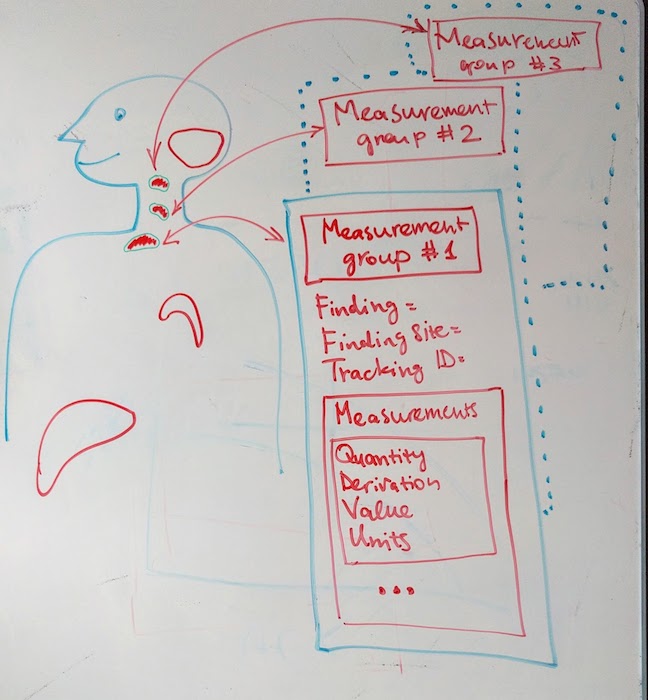 Measurement
group #3
Measurement
group #2
Measurement
group #1
Finding =
Finding Site=
Tracking ID=
Measurements
Quantity
Derivation
Value
Units
...